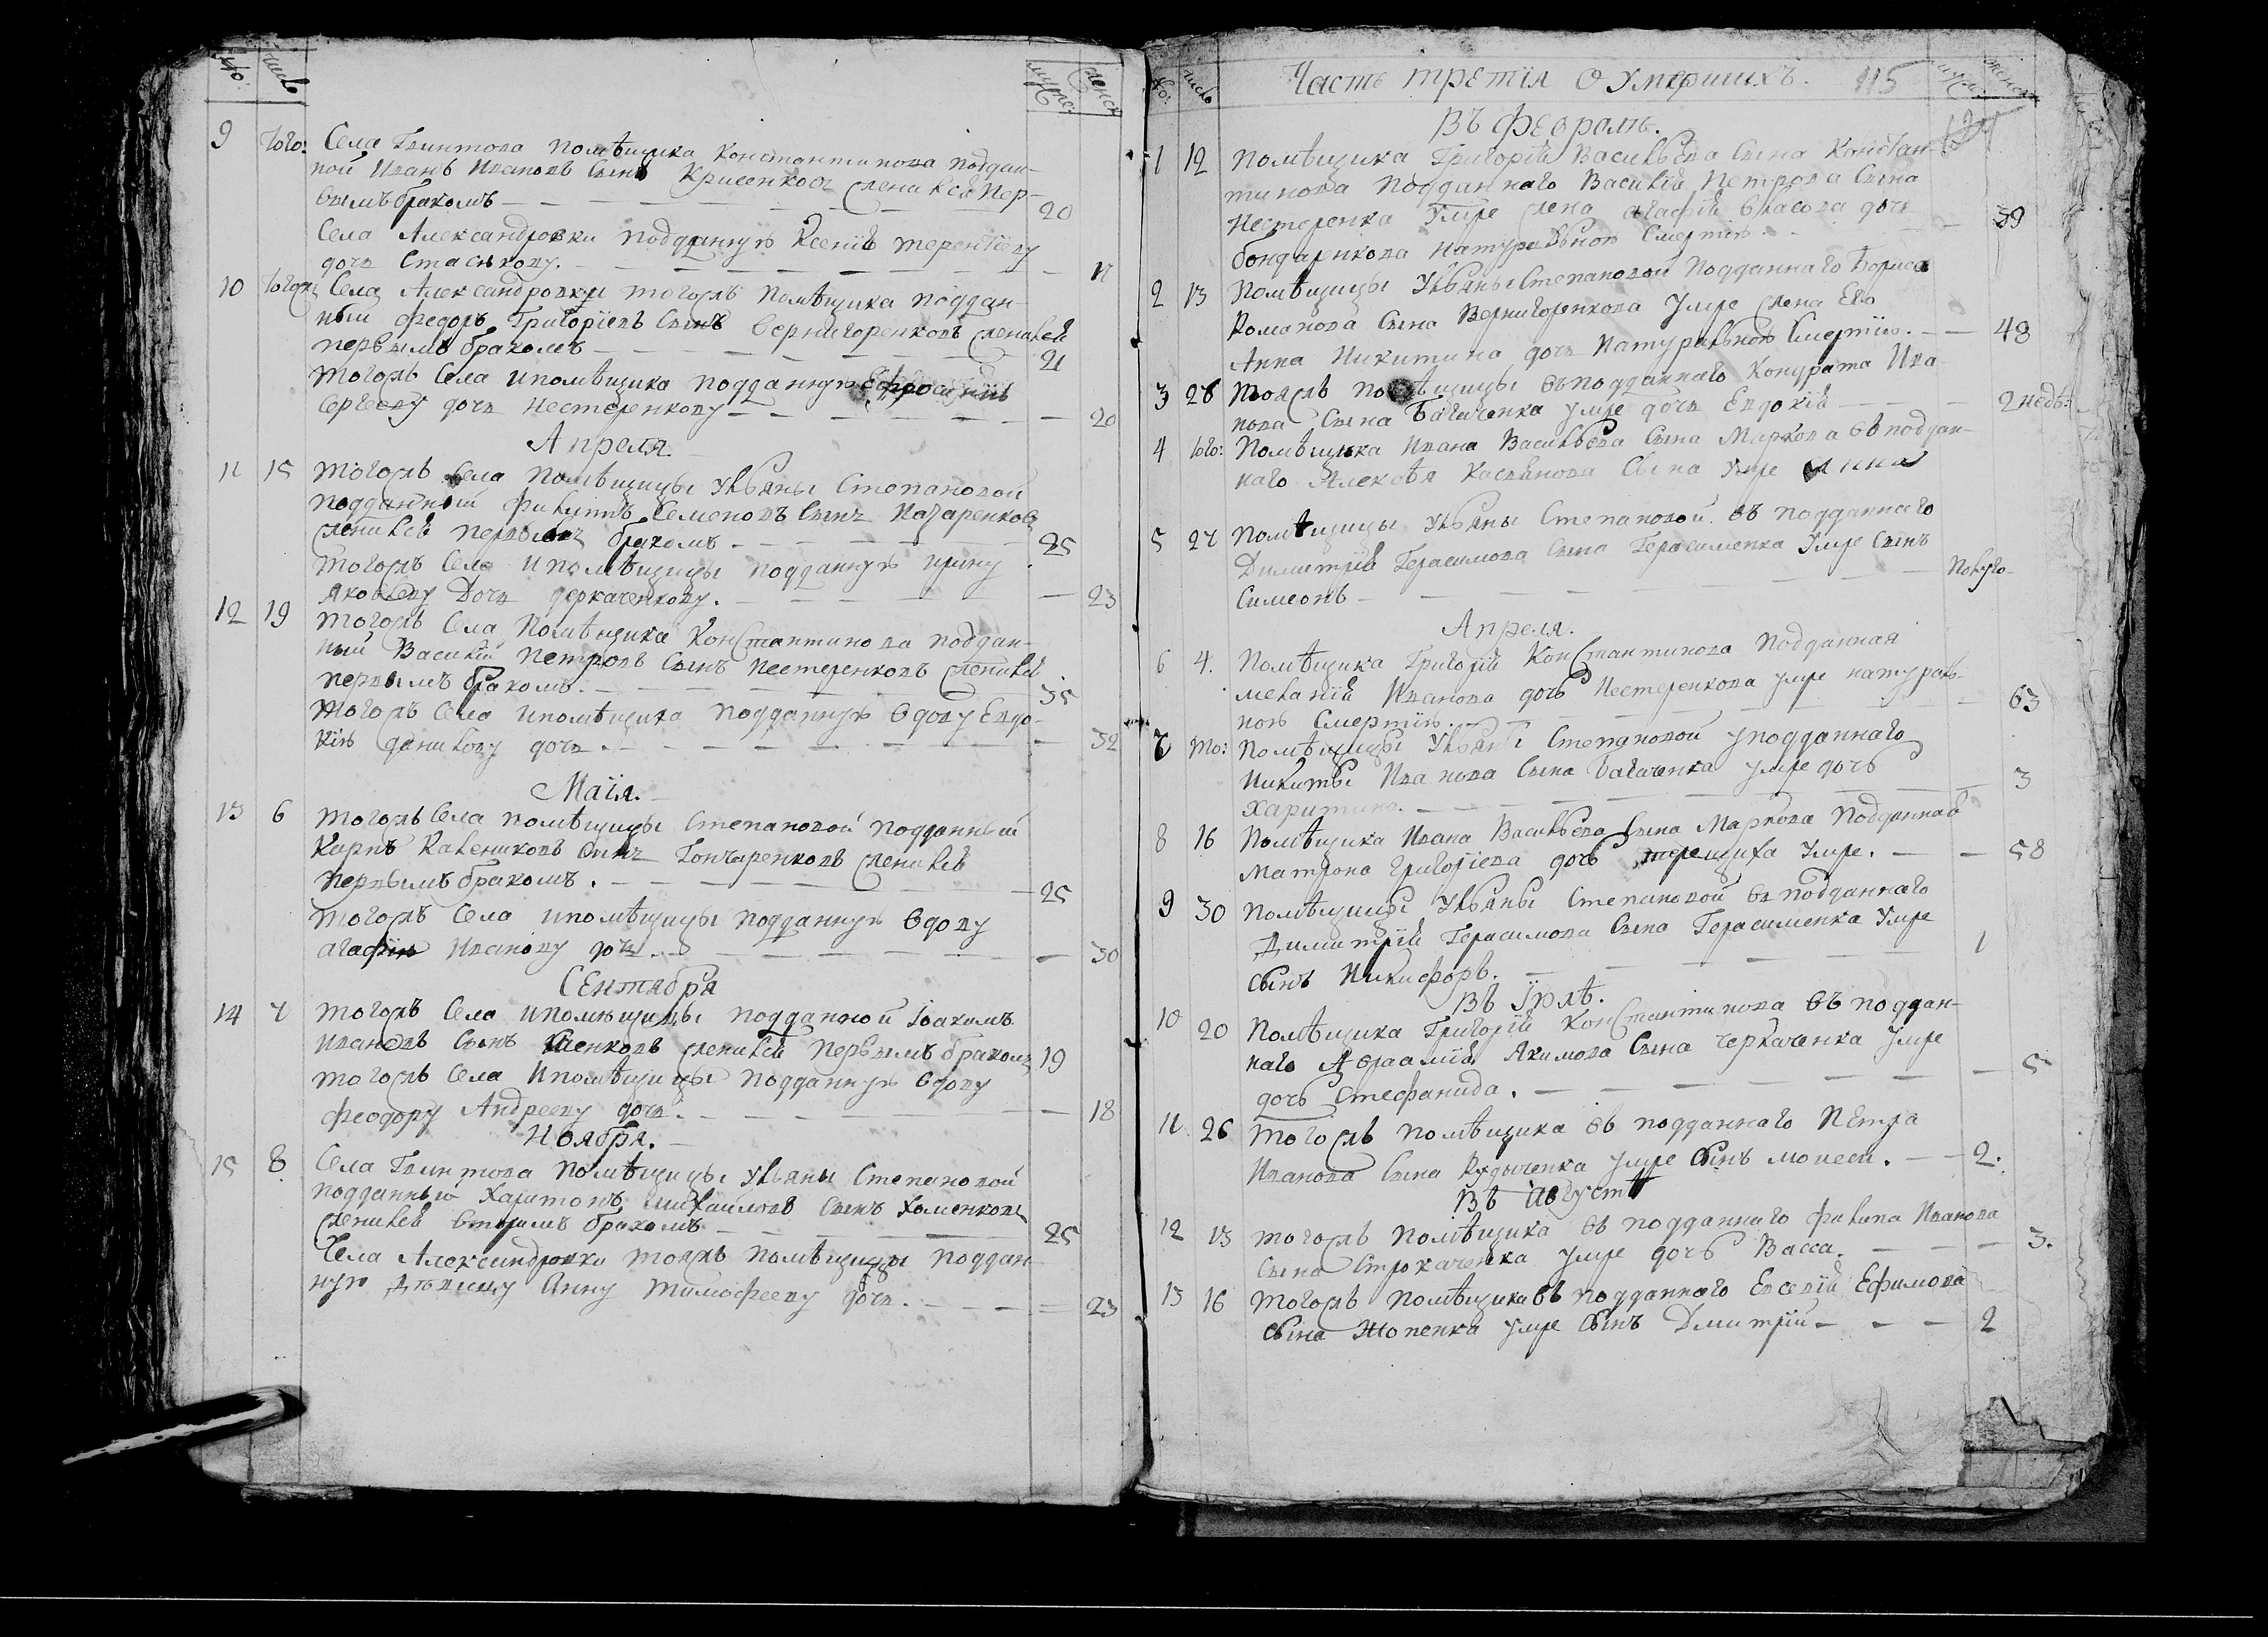 № числ мужс женск
9 тогож Села Глинтова помѣщика Константинова поддан-
ной Иванъ Ивановъ сынъ женился пер-
вымъ бракомъ 20
Села Александровки подданную Ксенію Терентіеву
дочь Стаськову. 17
10 тогож Села Александровки тогожъ помѣщика поддан-
ный Федоръ Григоріевъ сынъ Вернигоренковъ женился
первымъ бракомъ 21
тогожъ села и помѣщика подданную Ефросинію
Сергееву дочь Нестеренкову 20
Апреля.
11 15 тогожъ села помѣщицы Ульяны Степановой
подданный Филиппъ Семеновъ сынъ Назаренковъ
женился первымъ бракомъ 25
тогожъ села и помѣщицы подданную Ирину
Яковлеву дочь Деркаченкову. 23
12 19 тогожъ села помѣщика Константинова поддан-
ный Василій Петровъ сынъ Нестеренковъ женился
первымъ бракомъ. 35
тогожъ села и помѣщика подданную вдову Евдо-
кію Данилову дочь. 32
Маія.
13 6 тогожъ села помѣщицы Степановой подданный
Карпъ Калениковъ сынъ Гончаренковъ женился
первымъ бракомъ. 25
тогожъ села и помѣщицы подданную вдову
Агафію Иванову дочь. 30
Сентября
14 7 тогожъ села и помѣщицы подданной Іоакимъ
Ивановъ сынъ женился первымъ бракомъ 19
тогожъ села и помѣщицы подданную вдову
Феодору Андрееву дочь. 18
Ноября.
15 8 Села Глинтова помѣщицы Ульяны Степановой
подданный Харитонъ Михаиловъ сынъ Хоменковъ
женился вторымъ бракомъ 25
Села Александровки тояжъ помѣщицы поддан-
ную дѣвицу Анну Тимофееву дочь. 23
№ числ Часть третія о умершихъ. 115 мужс женск
Въ Февралѣ.
1 12 Помѣщика Григорія Васильева сына Констан-
тинова подданнаго Василія Петрова сына
Нестеренка умре жена Агафія Власова дочь 39
Бондарикова натуральною смертію.
2 13 Помѣщицы Ульяны Степановой подданнаго Бориса
Романова сына Вернигоренкова умре жена его
Анна Никитина дочь натуральною смертію. 48
3 28 Тояжъ помѣщицы въ подданнаго Кондрата Ива-
нова сына Багаченка умре дочь Евдокія 2 недѣ:
4 того: Помѣщика Ивана Васильева сына Маркова въ поддан-
наго Алексѣя Касьянова сына умре Анна
5 27 Помѣщицы Ульяны Степановой въ подданнаго
Димитрія Герасимова сына Герасименка умре сынъ
Симеонъ Полуго-
Апреля.
6 4. Помѣщика Григорія Константинова подданная
Меланія Иванова дочь Нестеренкова умре натураль-
ною смертію. 63
7 то: Помѣщицы Ульяны Степановой у подданнаго
Никиты Иванова сына Багаченка умре дочь
Харитина. 3
8 16 Помѣщика Ивана Васильева сына Маркова подданная
Матрона Григоріева дочь Терещиха умре. 58
9 30 Помѣщицы Ульяны Степановой въ подданнаго
Димитрія Герасимова сына Герасименка умре
сынъ Никифоръ. 1
Въ Іюлѣ.
10 20 Помѣщика Григорія Константинова въ поддан-
наго Авраамія Якимова сына Черкаченка умре
дочь Стефанида. 5
11 26 тогожъ помѣщика въ подданнаго Петра
Иванова сына Рудыченка умре сынъ Моисей. 2.
Въ Августѣ
12 13 тогожъ помѣщика въ подданнаго Филипа Иванова
сына умре дочь Васса. 3.
13 16 тогожъ помѣщика въ подданнаго Евсевія Ефимова
сына умре сынъ Дмитрій 2